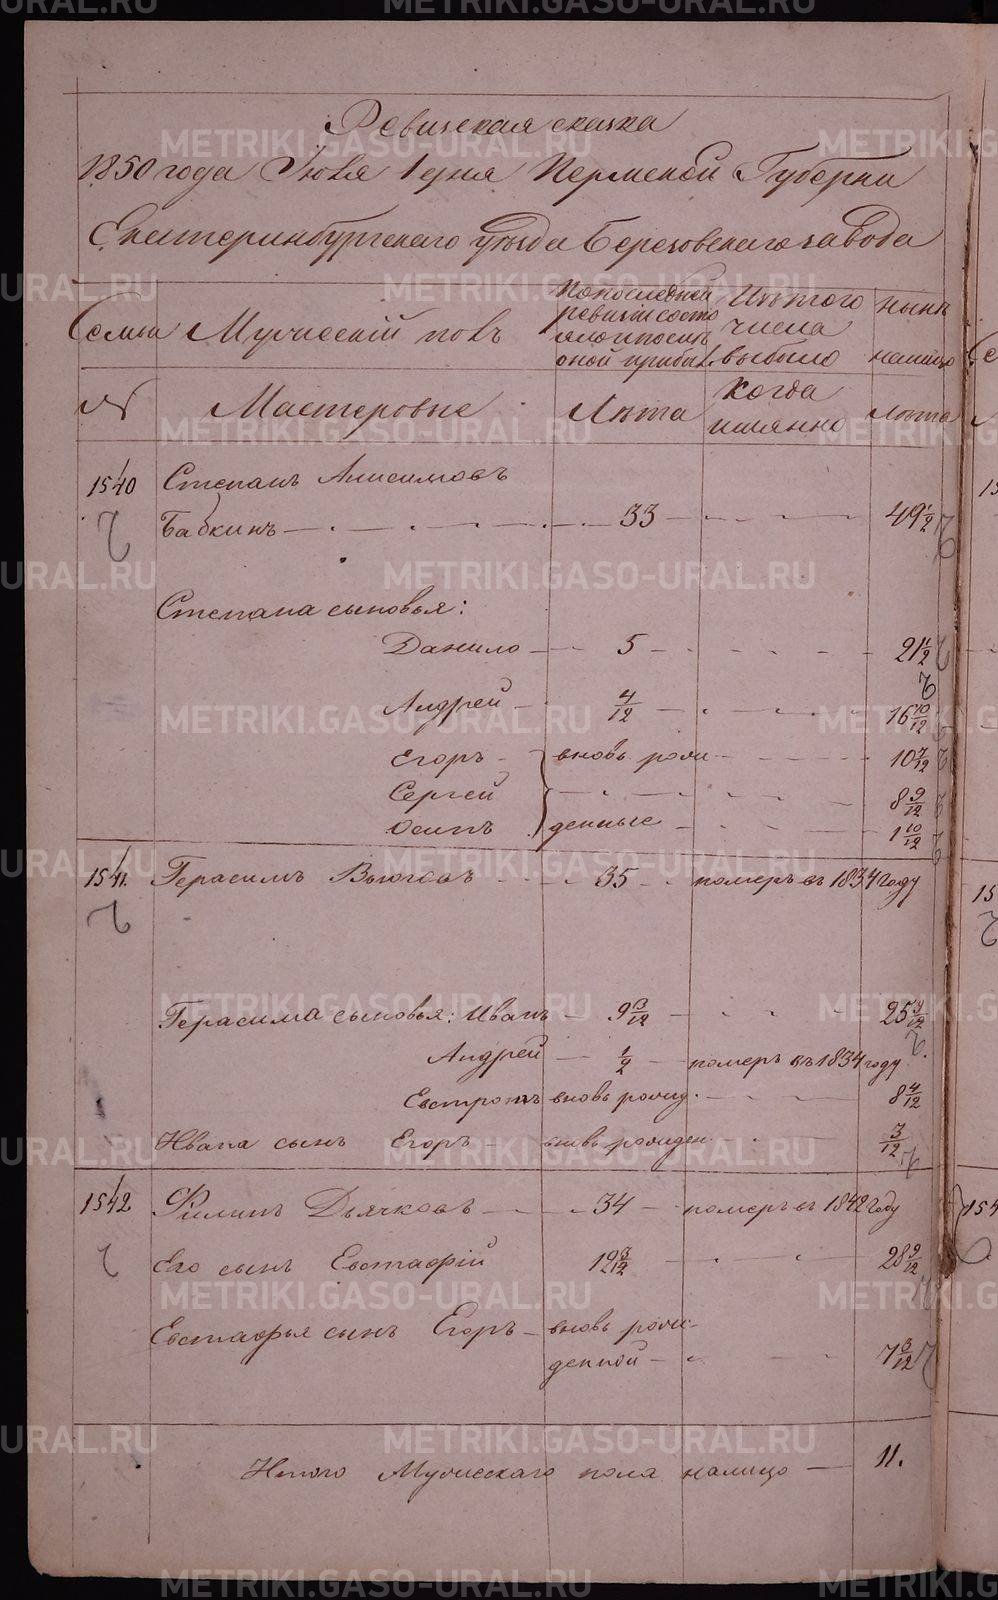 Ревизская сказка
1850 года Июня 1 дня Пермской Губернии
Екатеринбургскаго уезда Березовскаго завода
Семьи
Мужескій полъ
По последней ревизіи состояло и после оной прибыло
Изъ того числа выбыло
Ныне на лицо
№
Мастеровые
Лета
Когда именно
Лета
1540 Степанъ Анисимовъ
Бабкинъ 33 49 1/2
Степана сыновья:
Данило 5 21 1/2
Андрей 4/12 16 10/12
Егоръ вновь рож 10 7/12
Сергей 8 9/12
Осипъ денные 1 10/12
1541. Герасимъ Вьюговъ 35 померъ въ 1834 году
Герасима сыновья: Иванъ 9 25
Андрей 1/2 померъ въ 1834 году
Евстратъ вновь рожд. 8 4/12
Ивана сынъ Егоръ вновь рожден 3/12
1542 Филипъ Дьячковъ 34 померъ въ 1842 году
Его сынъ Евстафій 12 28 9/12
Евстафья сынъ Егоръ вновь рож-
денной 7 3/12
Итого Мужескаго пола налицо 11.
METRIKI.GASO-URAL.RU